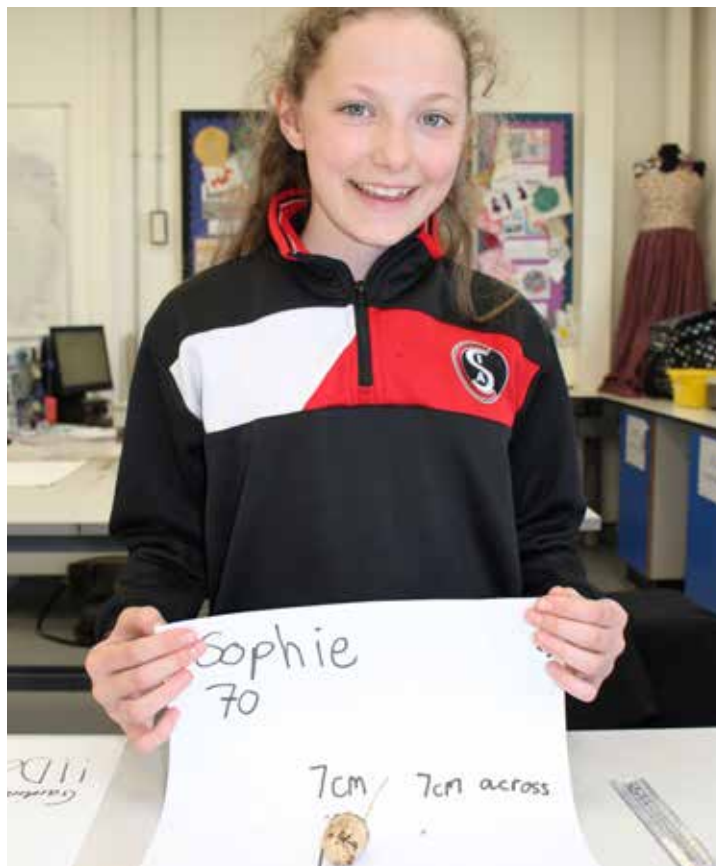 Sophie
70
7cm 7cm across